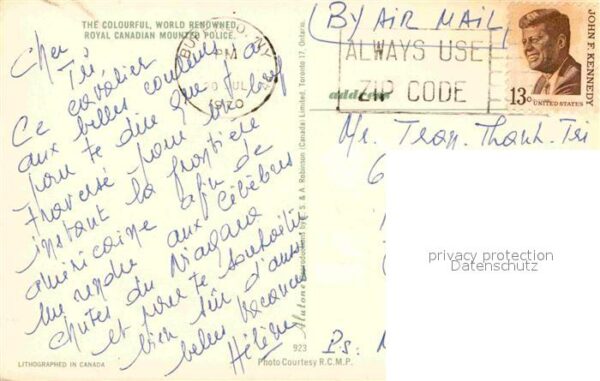 THE COLOURFUL, WORLD RENOWNED,
ROYAL CANADIAN MOUNTED POLICE.
Cher Tri
Ce cavalier
aux belles couleurs a
pour te dire que j'ai
traversé pour un bref
instant la frontière
américaine afin de
me rendre aux Célèbres
chutes du Niagara
et pour te souhaiter
bien sûr d'aussi
belles vacances
Hélène
LITHOGRAPHED IN CANADA
923
Photo Courtesy R.C.M.P.
S. & A. Robinson (Canada) Limited, Toronto 17, Ontario.
PM
1970
(BY AIR MAIL)
ALWAYS USE
ZIP CODE
address
JOHN F. KENNEDY
13c UNITED STATES
Mr. Tran. Thanh. Tri
6
privacy protection
Datenschutz
Ps: